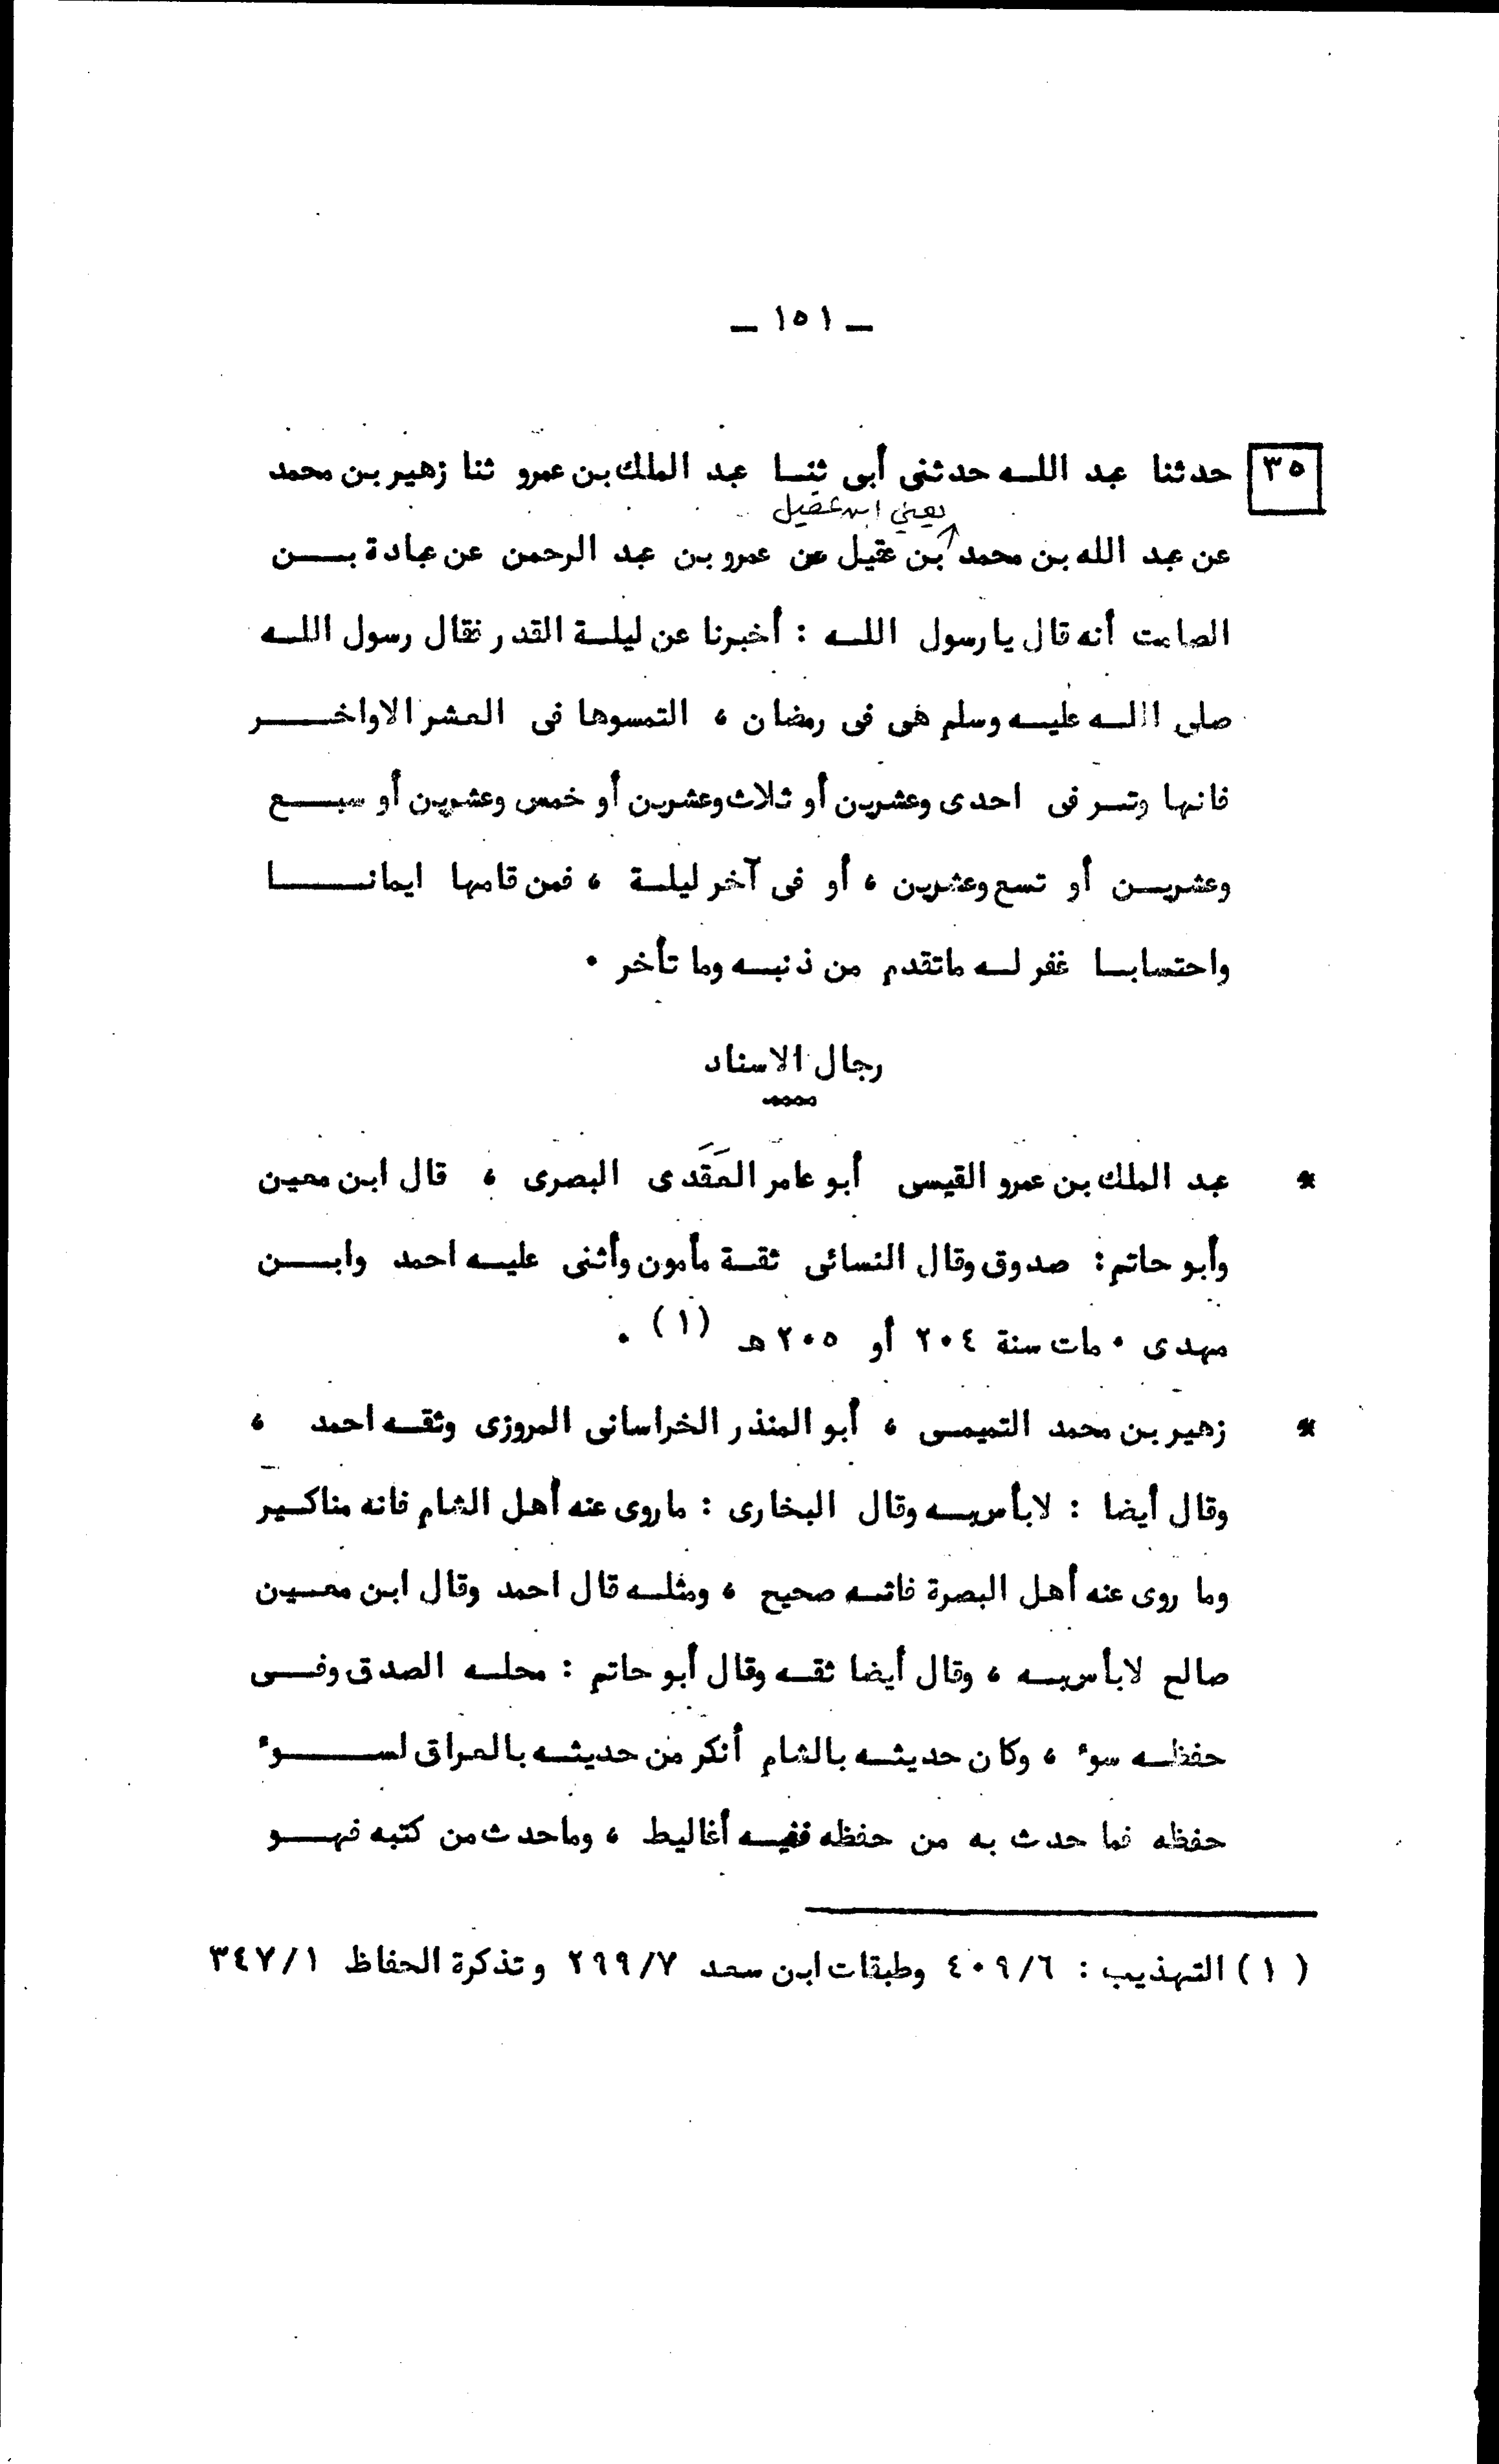 – ١٥١ –
٣٥ حدثنا عبد الله حدثنى أبى ثنا عبد الملك بن عمرو ثنا زهير بن محمد
يعني ابن عقيل
عن عبد الله بن محمد بن عقيل عن عمرو بن عبد الرحمن عن عبادة بن
الصامت أنه قال يا رسول الله : أخبرنا عن ليلة القدر فقال رسول الله
صلى الله عليه وسلم هى فى رمضان ، التمسوها فى العشر الاواخر
فانها وتر فى احدى وعشرين أو ثلاث وعشرين أو خمس وعشرين أو سبع
وعشرين أو تسع وعشرين ، أو فى آخر ليلة ، فمن قامها ايمانا
واحتسابا غفر له ماتقدم من ذنبه وما تأخر .
رجال الاسناد
* عبد الملك بن عمرو القيسى أبو عامر العَقَدى البصرى ، قال ابن معين
وأبو حاتم : صدوق وقال النسائى ثقة مأمون وأثنى عليه احمد وابن
مهدى . مات سنة ٢٠٤ أو ٢٠٥ هـ (١) .
* زهير بن محمد التميمى ، أبو المنذر الخراسانى المروزى وثقه احمد ،
وقال أيضا : لابأس به وقال البخارى : ماروى عنه أهل الشام فانه مناكير
وما روى عنه أهل البصرة فانه صحيح ، ومثله قال احمد وقال ابن معين
صالح لابأس به ، وقال أيضا ثقه وقال أبو حاتم : محله الصدق وفى
حفظه سوء ، وكان حديثه بالشام أنكر من حديثه بالعراق لسوء
حفظه فما حدث به من حفظه ففيه أغاليط ، وماحدث من كتبه فهو
(١) التهذيب : ٤٠٩/٦ وطبقات ابن سعد ٢٩٩/٧ وتذكرة الحفاظ ٣٤٧/١